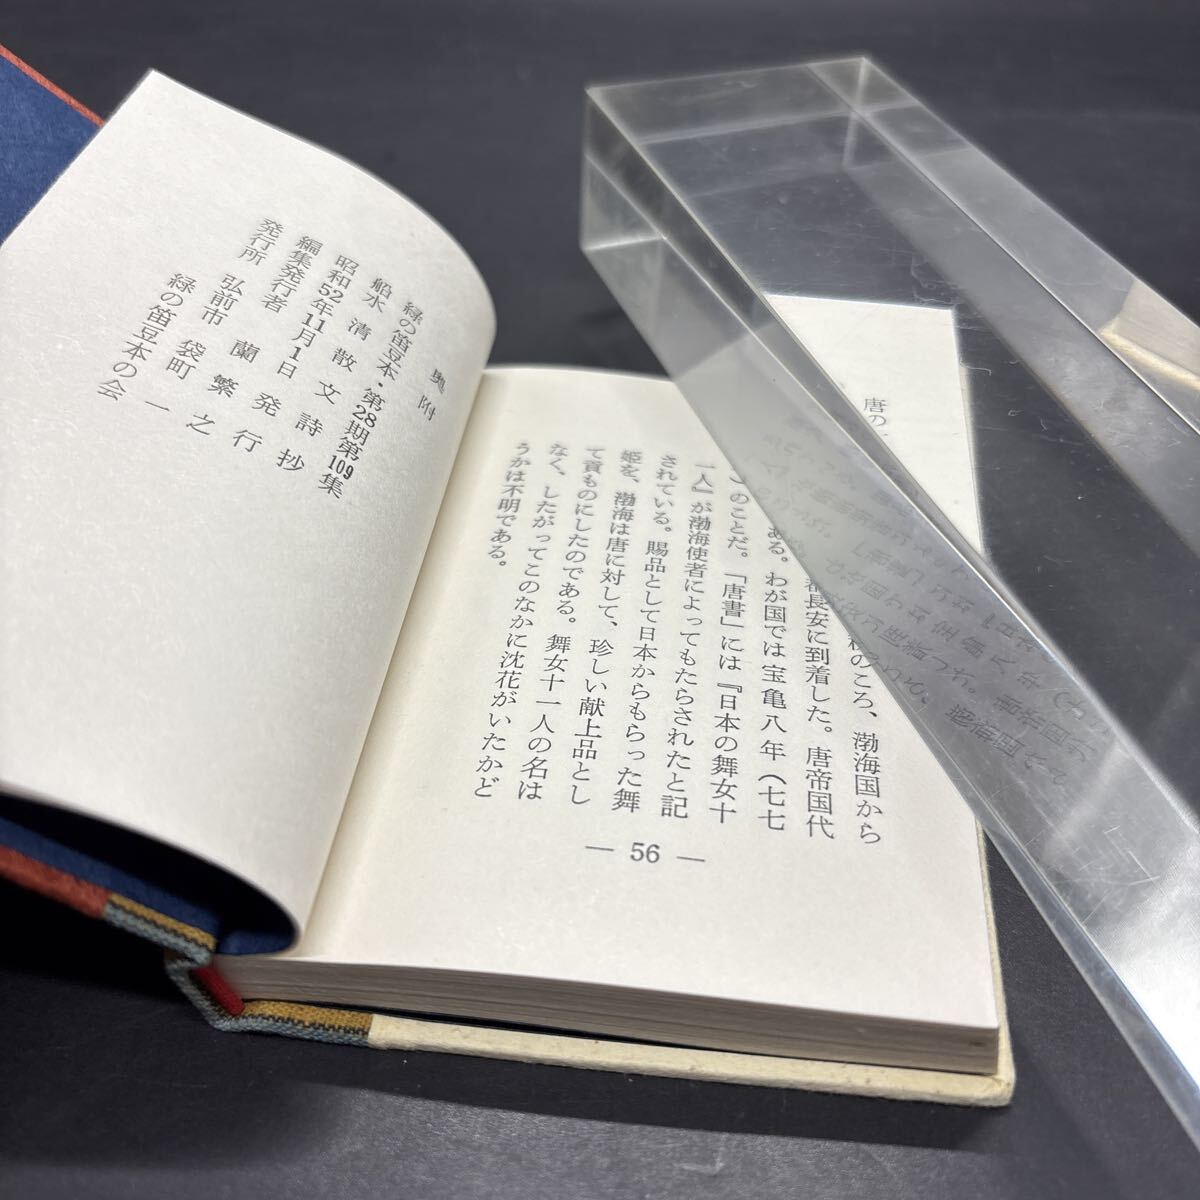 唐の
のころ、渤海国から
長安に到着した。唐帝国代
ある。わが国では宝亀八年(七七
)のことだ。「唐書」には『日本の舞女十
一人』が渤海使者によってもたらされたと記
されている。賜品として日本からもらった舞
姫を、渤海は唐に対して、珍しい献上品とし
て貢ものにしたのである。舞女十一人の名は
なく、したがってこのなかに沈花がいたかど
うかは不明である。
— 56 —
奥附
緑の笛豆本・第28期第109集
船水 清 散文詩抄
昭和52年11月1日 発行
編集発行者 蘭 繁之
発行所 弘前市 袋町 一
緑の笛豆本の会